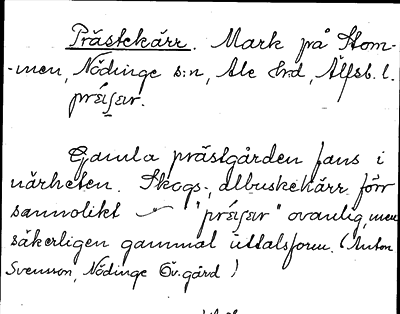 Prästekärr. Mark på Stom-
-men, Nödinge s:n, Ale hrd, Älfsb. l.
Gamla prästgården fans i
närheten. Skogs-, albuskekärr förr
sannolikt — " " ovanlig, men
säkerligen gammal uttalsform. (Anton
Svensson, Nödinge Öv.gård)